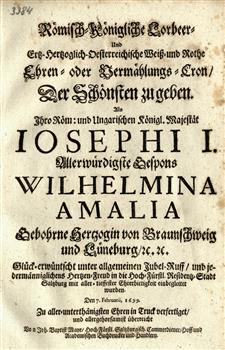 3384
Römisch-Königliche Lorbeer-
Und
Ertz-Hertzoglich-Oesterreichische Weiß-und Rothe
Ehren- oder Vermählungs-Cron/
Der Schönsten zu geben.
Als
Ihro Röm: und Ungarischen Königl. Majestät
IOSEPHI I.
Allerwürdigste Gespons
WILHELMINA
AMALIA
Gebohrne Hertzogin von Braunschweig
und Lüneburg/ ꝛc. ꝛc.
Glück-erwünscht unter allgemeinen Jubel-Ruff/ und je-
dermänniglichens Hertzen-Freud in die Hoch-Fürstl. Residentz-Stadt
Saltzburg mit aller-tieffester Ehrerbietigkeit einbegleitet
wurden.
Den 7. Februarii, 1699.
Zu aller-unterthänigsten Ehren in Truck verfertiget/
und allergehorsamst überreicht
Von Joh. Baptist Mayr/ Hoch-Fürstl. Saltzburgisch.
Academischen Buchdrucker und Handlern.